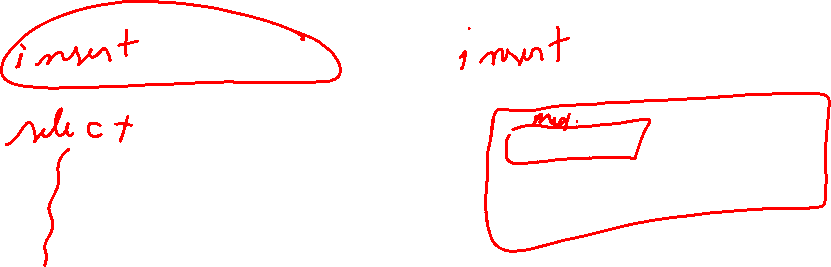 insert
select
insert